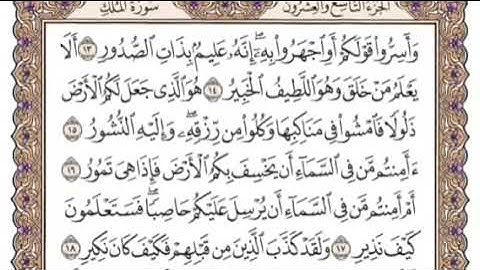 الجزء التاسع والعشرون سورة الملك
وَأَسِرُّوا۟ قَوْلَكُمْ أَوِ ٱجْهَرُوا۟ بِهِۦٓ ۖ إِنَّهُۥ عَلِيمٌۢ بِذَاتِ ٱلصُّدُورِ ١٣ أَلَا
يَعْلَمُ مَنْ خَلَقَ وَهُوَ ٱللَّطِيفُ ٱلْخَبِيرُ ١٤ هُوَ ٱلَّذِى جَعَلَ لَكُمُ ٱلْأَرْضَ
ذَلُولًا فَٱمْشُوا۟ فِى مَنَاكِبِهَا وَكُلُوا۟ مِن رِّزْقِهِۦ ۖ وَإِلَيْهِ ٱلنُّشُورُ ١٥
ءَأَمِنتُم مَّن فِى ٱلسَّمَآءِ أَن يَخْسِفَ بِكُمُ ٱلْأَرْضَ فَإِذَا هِىَ تَمُورُ ١٦
أَمْ أَمِنتُم مَّن فِى ٱلسَّمَآءِ أَن يُرْسِلَ عَلَيْكُمْ حَاصِبًا ۖ فَسَتَعْلَمُونَ
كَيْفَ نَذِيرِ ١٧ وَلَقَدْ كَذَّبَ ٱلَّذِينَ مِن قَبْلِهِمْ فَكَيْفَ كَانَ نَكِيرِ ١٨